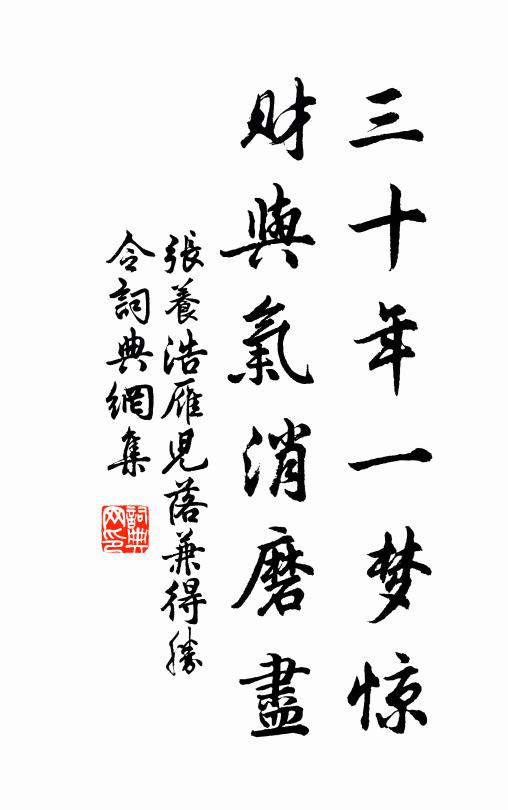 三十年一梦惊
财與氣消磨盡
張養浩雁児落兼得勝
令詞典網集
詞典网印